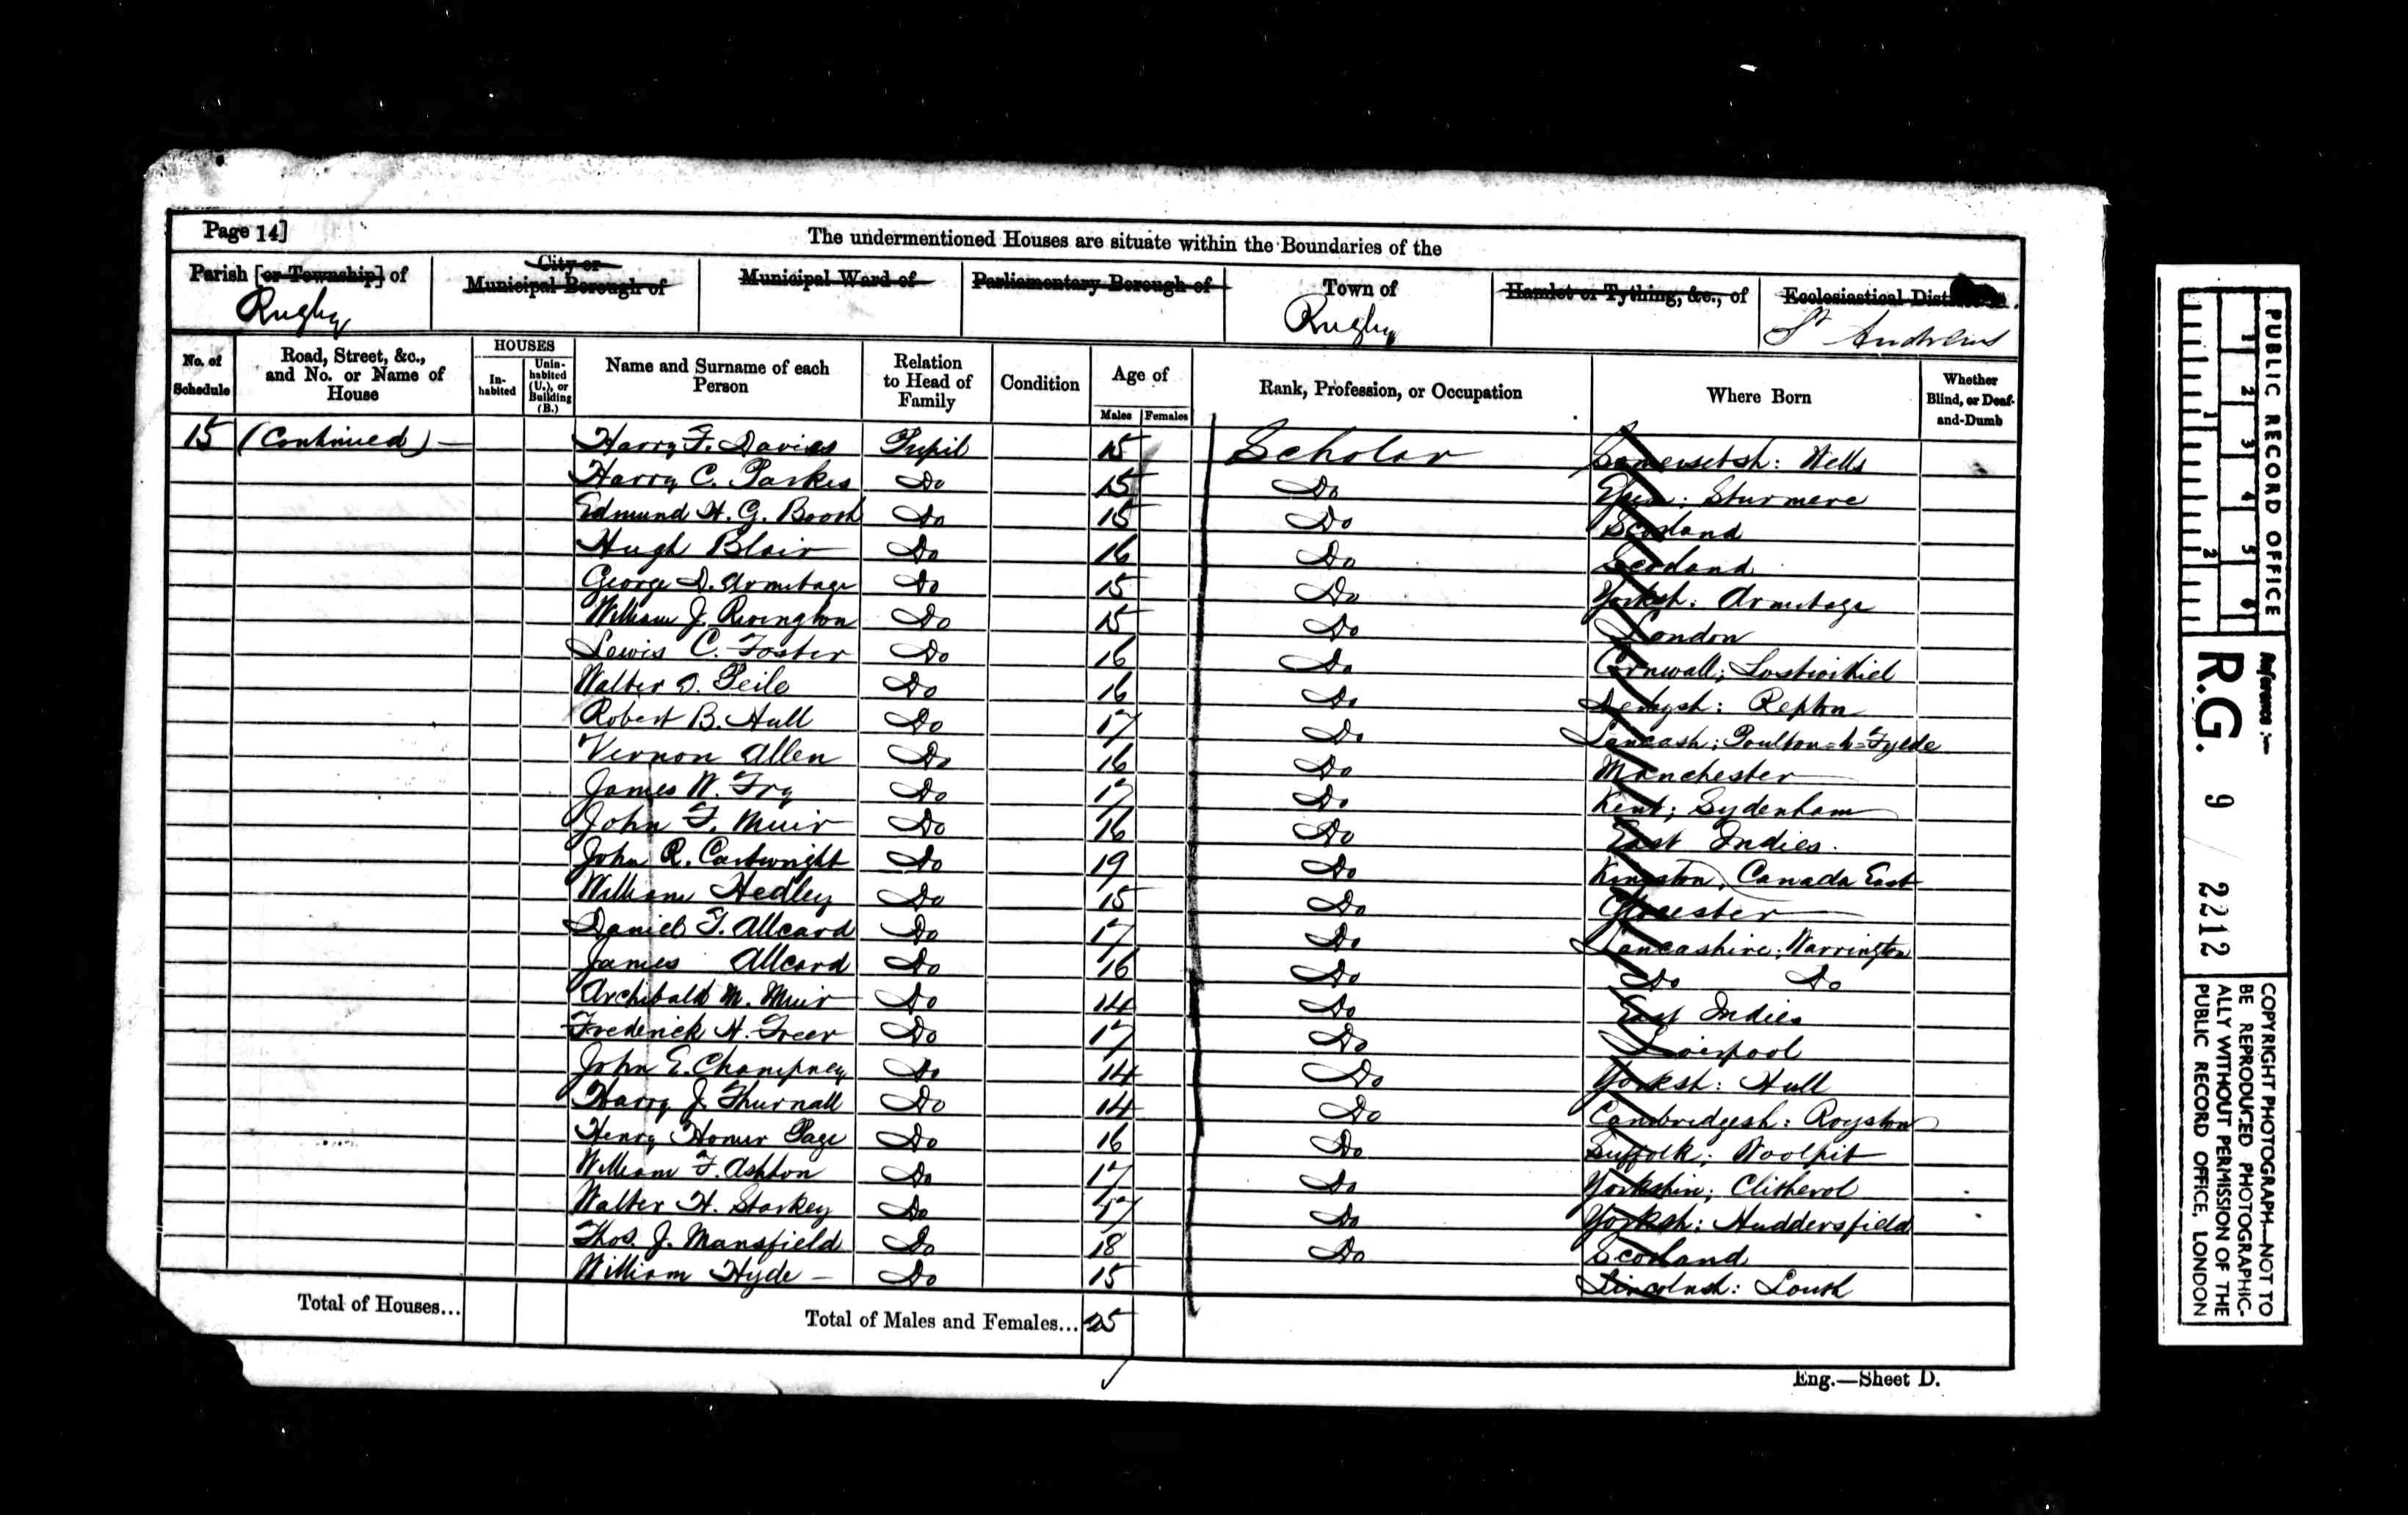 Page 14]
The undermentioned Houses are situate within the Boundaries of the
Parish [or Township] of
Rugby
City or
Municipal Borough of
Municipal Ward of
Parliamentary Borough of
Town of
Rugby
Hamlet or Tything, &c., of
Ecclesiastical District of
St Andrews
No. of Schedule
Road, Street, &c., and No. or Name of House
HOUSES
In-habited
Unin-habited (U.), or Building (B.)
Name and Surname of each Person
Relation to Head of Family
Condition
Age of
Males Females
Rank, Profession, or Occupation
Where Born
Whether Blind, or Deaf-and-Dumb
15 (Continued) — Harry F. Davies Pupil 15 Scholar Somersetsh: Wells
Harry C. Parkes Do 15 Do Essex: Sturmere
Edmund H. G. Do 15 Do Scotland
Hugh Blair Do 16 Do Scotland
George D. Armitage Do 15 Do Yorksh: Armitage
William J. Rivington Do 15 Do London
Lewis C. Foster Do 16 Do Cornwall; Lostwithiel
Walter D. Peile Do 16 Do Derbysh: Repton
Robert B. Hull Do 17 Do Lancash; Poulton=le=Fylde
Vernon Allen Do 16 Do Manchester
James W. Fry Do 17 Do Kent; Sydenham
John F. Muir Do 16 Do East Indies.
John R. Cartwright Do 19 Do Kingston, Canada East
William Hedley Do 15 Do Gloucester
Daniel F. Allcard Do 17 Do Lancashire; Warrington
James Allcard Do 16 Do Do Do
Archibald M. Muir Do 14 Do East Indies
Frederick H. Freer Do 17 Do Liverpool
John E. Champney Do 14 Do Yorksh: Hull
Harry J. Thurnall Do 14 Do Cambridgesh: Royston
Henry Homer Page Do 16 Do Suffolk; Woolpit
William F. Ashton Do 17 Do Yorkshire; Clitherol
Walter H. Starkey Do 17 Do Yorksh: Huddersfield
Thos. J. Mansfield Do 18 Do Scotland
William Hyde — Do 15 Lincolnsh: Louth
Total of Houses...
Total of Males and Females... 25
Eng.—Sheet D.
PUBLIC RECORD OFFICE
1 2 3 4 5 6
1 2
Reference :—
R.G. 9 2212
COPYRIGHT PHOTOGRAPH—NOT TO
BE REPRODUCED PHOTOGRAPHIC-
ALLY WITHOUT PERMISSION OF THE
PUBLIC RECORD OFFICE, LONDON